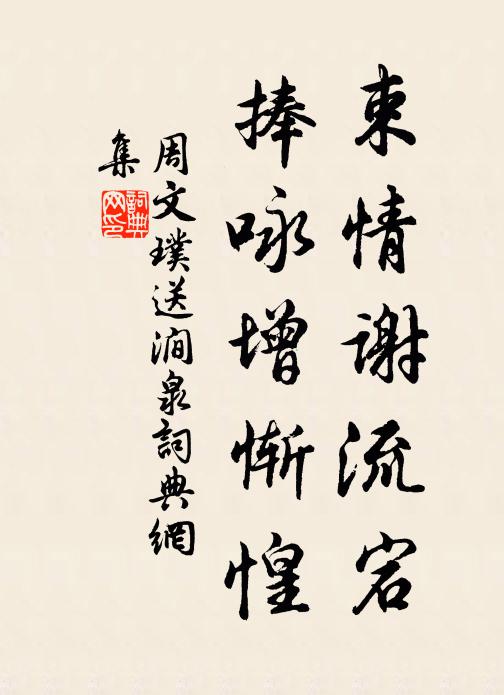 束情謝流宕
捧咏增惭惶
周文璞送澗泉詞典網
集
詞典
网印